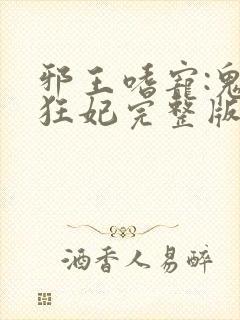 邪王嗜宠:鬼
狂妃完整版
酒香人易醉